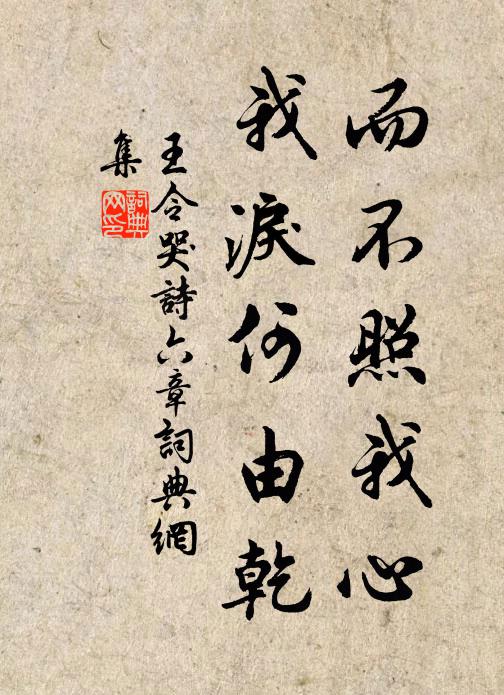 而不照我心
我淚何由乾
王令哭詩六章詞典網
集
詞典
网印